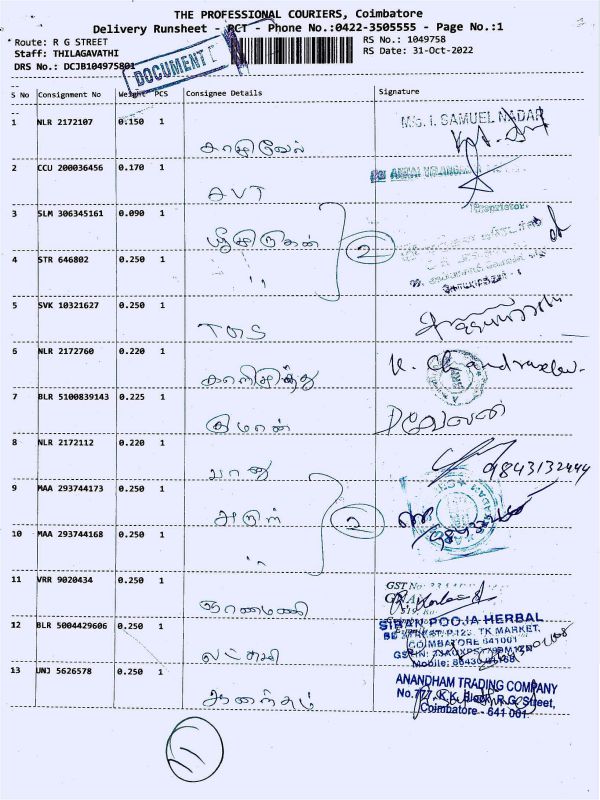 THE PROFESSIONAL COURIERS, Coimbatore
Delivery Runsheet - PCT - Phone No.:0422-3505555 - Page No.:1
Route: R G STREET
RS No.: 1049758
Staff: THILAGAVATHI
RS Date: 31-Oct-2022
DRS No.: DCJB104975801
DOCUMENT
S No Consignment No Weight PCS Consignee Details Signature
1 NLR 2172107 0.150 1 M/s. I. SAMUEL NADAR
2 CCU 200036456 0.170 1 AVT
3 SLM 306345161 0.090 1 ஸ்ரீமுருகன் 2 Proprietor
4 STR 646802 0.250 1 ,,
5 SVK 10321627 0.250 1 TMS
6 NLR 2172760 0.220 1 K. Chandrasekar.
7 BLR 5100839143 0.225 1
8 NLR 2172112 0.220 1 பானு 9843132444
9 MAA 293744173 0.250 1 அருள் 2
10 MAA 293744168 0.250 1 ,,
11 VRR 9020434 0.250 1 ஞானமணி GST No
12 BLR 5004429606 0.250 1 லட்சுமி
POOJA HERBAL
TK MARKET,
COIMBATORE 641001
GSTIN:
Mobile:
13 UNJ 5626578 0.250 1 ஆனந்தம்
ANANDHAM TRADING COMPANY
No.777, K.K. Block, R.G. Street,
Coimbatore - 641 001.